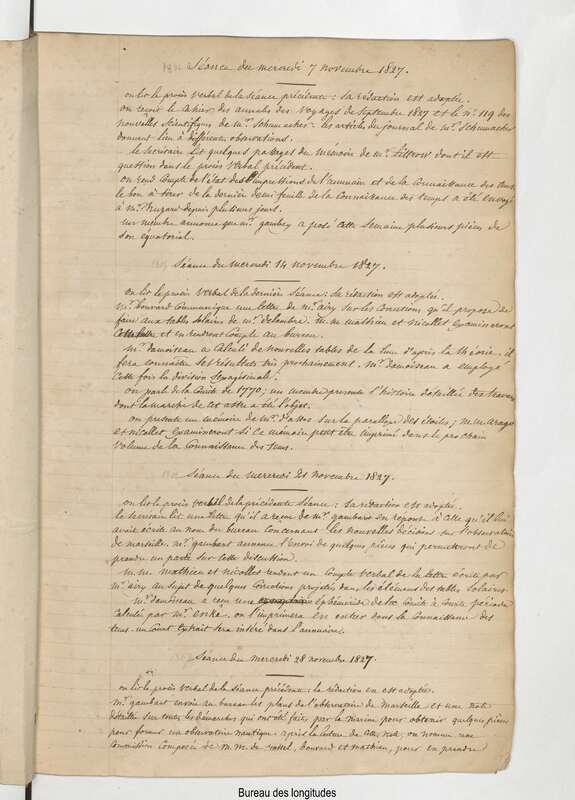 Séance du mercredi 7 novembre 1827.
on lit le procès verbal de la séance précédente : sa rédaction est adoptée.
on reçoit le cahier des annales des voyages de septembre 1827 et le n° 119 des
nouvelles scientifiques de mr. Schumacher. les articles du journal de mr. Schumacher
donnent lieu à différentes observations.
le secrétaire lit quelques passages du mémoire de mr. Littrow dont il est
question dans le procès verbal précédent.
on rend compte de l'état des impressions de l'annuaire et de la connaissance des tems.
le bon à tirer de la dernière demi feuille de la connaissance des temps a été envoyé
à mr. huzard depuis plusieurs jours.
un membre annonce que mr. gambey a posé cette semaine plusieurs pièces de
son équatorial.
Séance du mercredi 14 novembre 1827.
on lit le procès verbal de la dernière séance : sa rédaction est adoptée.
mr. bouvard communique une lettre de mr. airy sur les corrections qu'il propose de
faire aux tables solaires de mr. delambre. m.m. mathieu et nicollet examineront
cette lettre et en rendront compte au bureau.
mr. damoiseau a calculé de nouvelles tables de la lune d'après la théorie. il
fera connaître ses résultats très prochainement. mr. damoiseau a employé
cette fois la division sexagésimale.
on parle de la comète de 1770; un membre présente l'histoire détaillée des travaux
dont la marche de cet astre a été l'objet.
on présente un mémoire de mr. d'assas sur la parallaxe des étoiles; m.m. arago
et nicollet, examineront si ce mémoire peut être imprimé dans le prochain
volume de la connaissance des tems.
Séance du mercredi 21 novembre 1827.
on lit le procès verbal de la précédente séance : sa rédaction est adoptée.
le secrétaire lit une lettre qu'il a reçue de mr. gambart en réponse à celle qu'il lui
avait écrite au nom du bureau concernant les nouvelles décisions sur l'observatoire
de marseille. mr. gambart annonce l'envoi de quelques pièces qui permettront de
prendre un parti sur cette discussion.
m.m. mathieu et nicollet rendent un compte verbal de la lettre écrite par
mr. airy au sujet de quelques corrections projetées dans les élémens des tables solaires.
mr. damoiseau a reçu une éphéméride de la comète à courte période
calculée par mr. enke. on l'imprimera en entier dans la connaissance des
tems. un court extrait sera inséré dans l'annuaire.
Séance du mercredi 28 novembre 1827.
on lit le procès verbal de la séance précédente. la rédaction en est adoptée.
mr. gambart envoie au bureau les plans de l'observatoire de marseille et une note
détaillée sur toutes les démarches qui ont été faites par la marine pour obtenir quelques pièces
pour former un observatoire nautique. après la lecture de cette note, on nomme une
commission composée de m.m. de rossel, bouvard et mathieu, pour en prendre
Bureau des longitudes